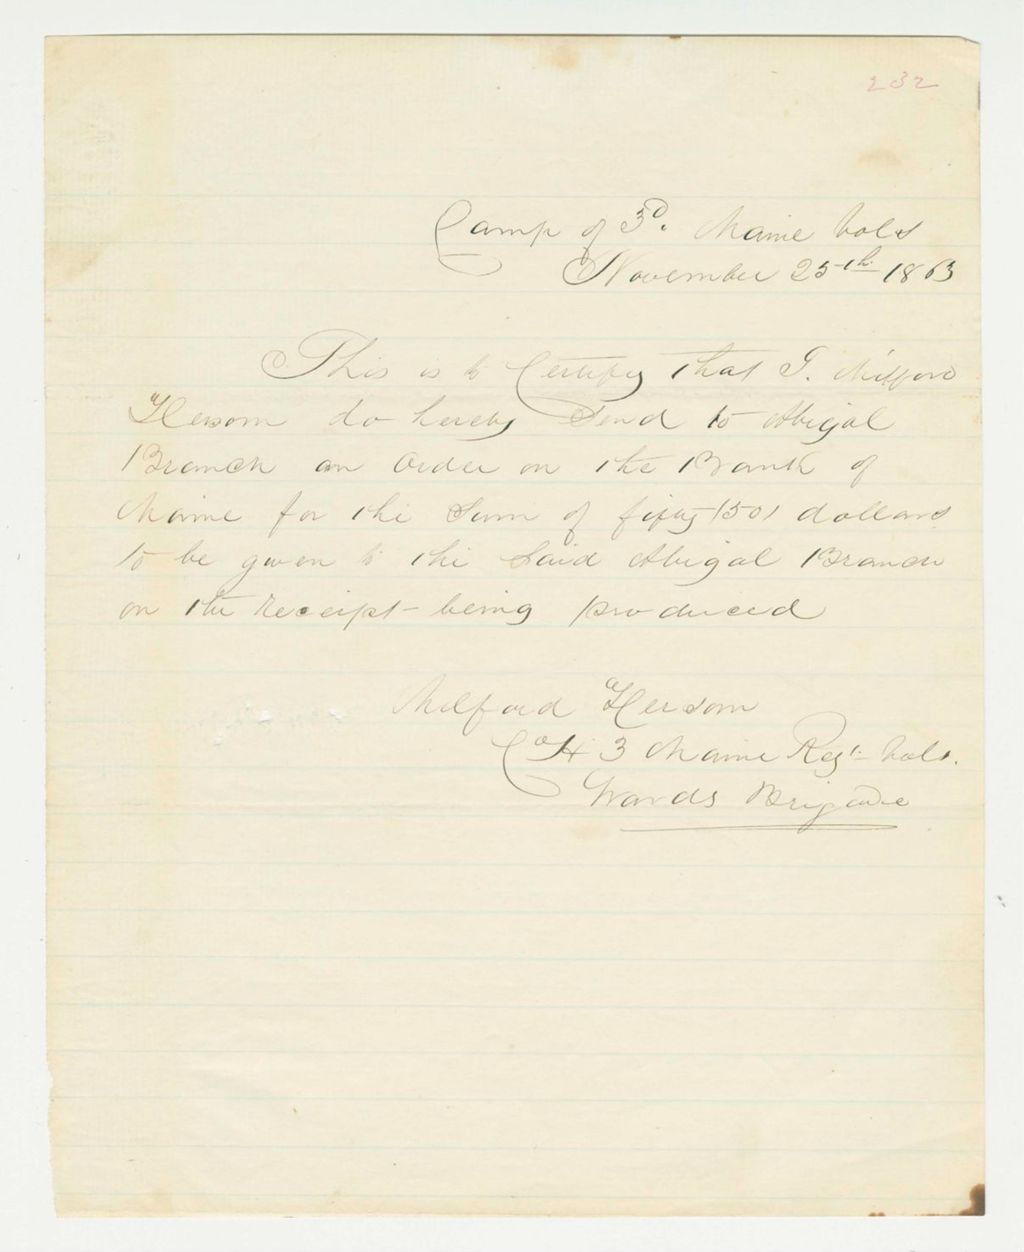 232
Camp of 3d. Maine Vols
November 25th 1863
This is to Certify that I. Milford
Hersom do hereby Send to Abigal
Branch an Order on the Bank of
Maine for the Sum of fifty (50) dollars
to be given to the Said Abigal Branch
on the Receipt being produced
Milford Hersom
Co H 3 Maine Regt. Vols.
Wards Brigade